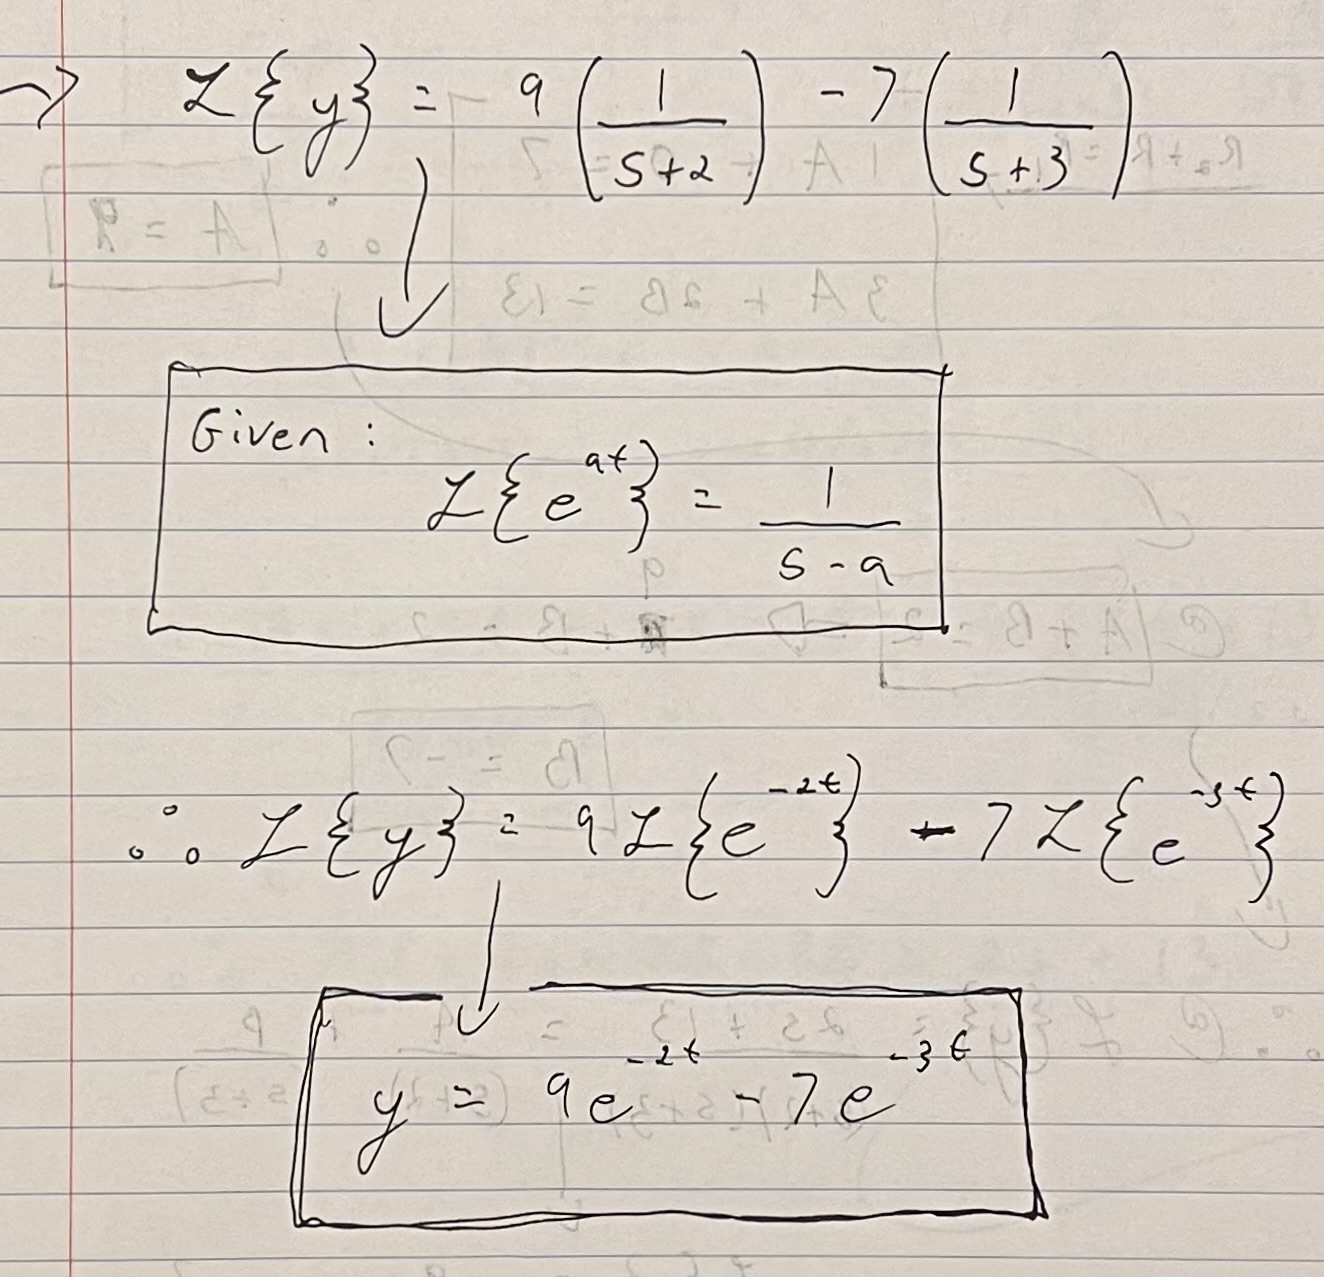 → ℒ{y} = 9(1/(s+2)) - 7(1/(s+3))
Given :
ℒ{e^{at}} = 1/(s-a)
∴ ℒ{y} = 9ℒ{e^{-2t}} - 7ℒ{e^{-3t}}
y = 9e^{-2t} - 7e^{-3t}